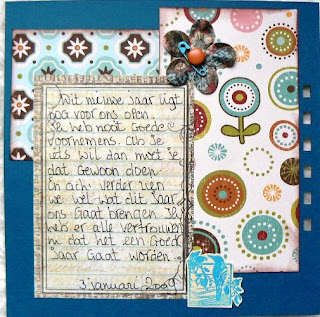 Dit nieuwe jaar ligt
nog voor ons open.
Ik heb nooit goede
voornemens. Als je
iets wil dan moet je
dat gewoon doen.
En ach, verder zien
we wel wat dit jaar
ons gaat brengen. Ik
heb er alle vertrouwen
in dat het een goed
jaar gaat worden.
3 januari 2009